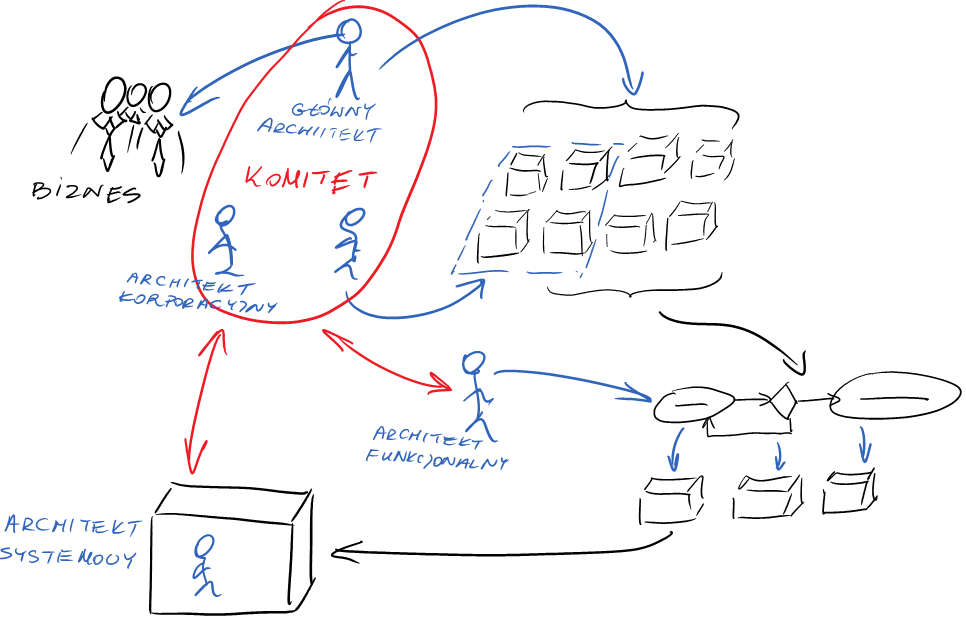 GŁÓWNY
ARCHITEKT
BIZNES
KOMITET
ARCHITEKT
KORPORACYJNY
ARCHITEKT
FUNKCJONALNY
ARCHITEKT
SYSTEMOWY